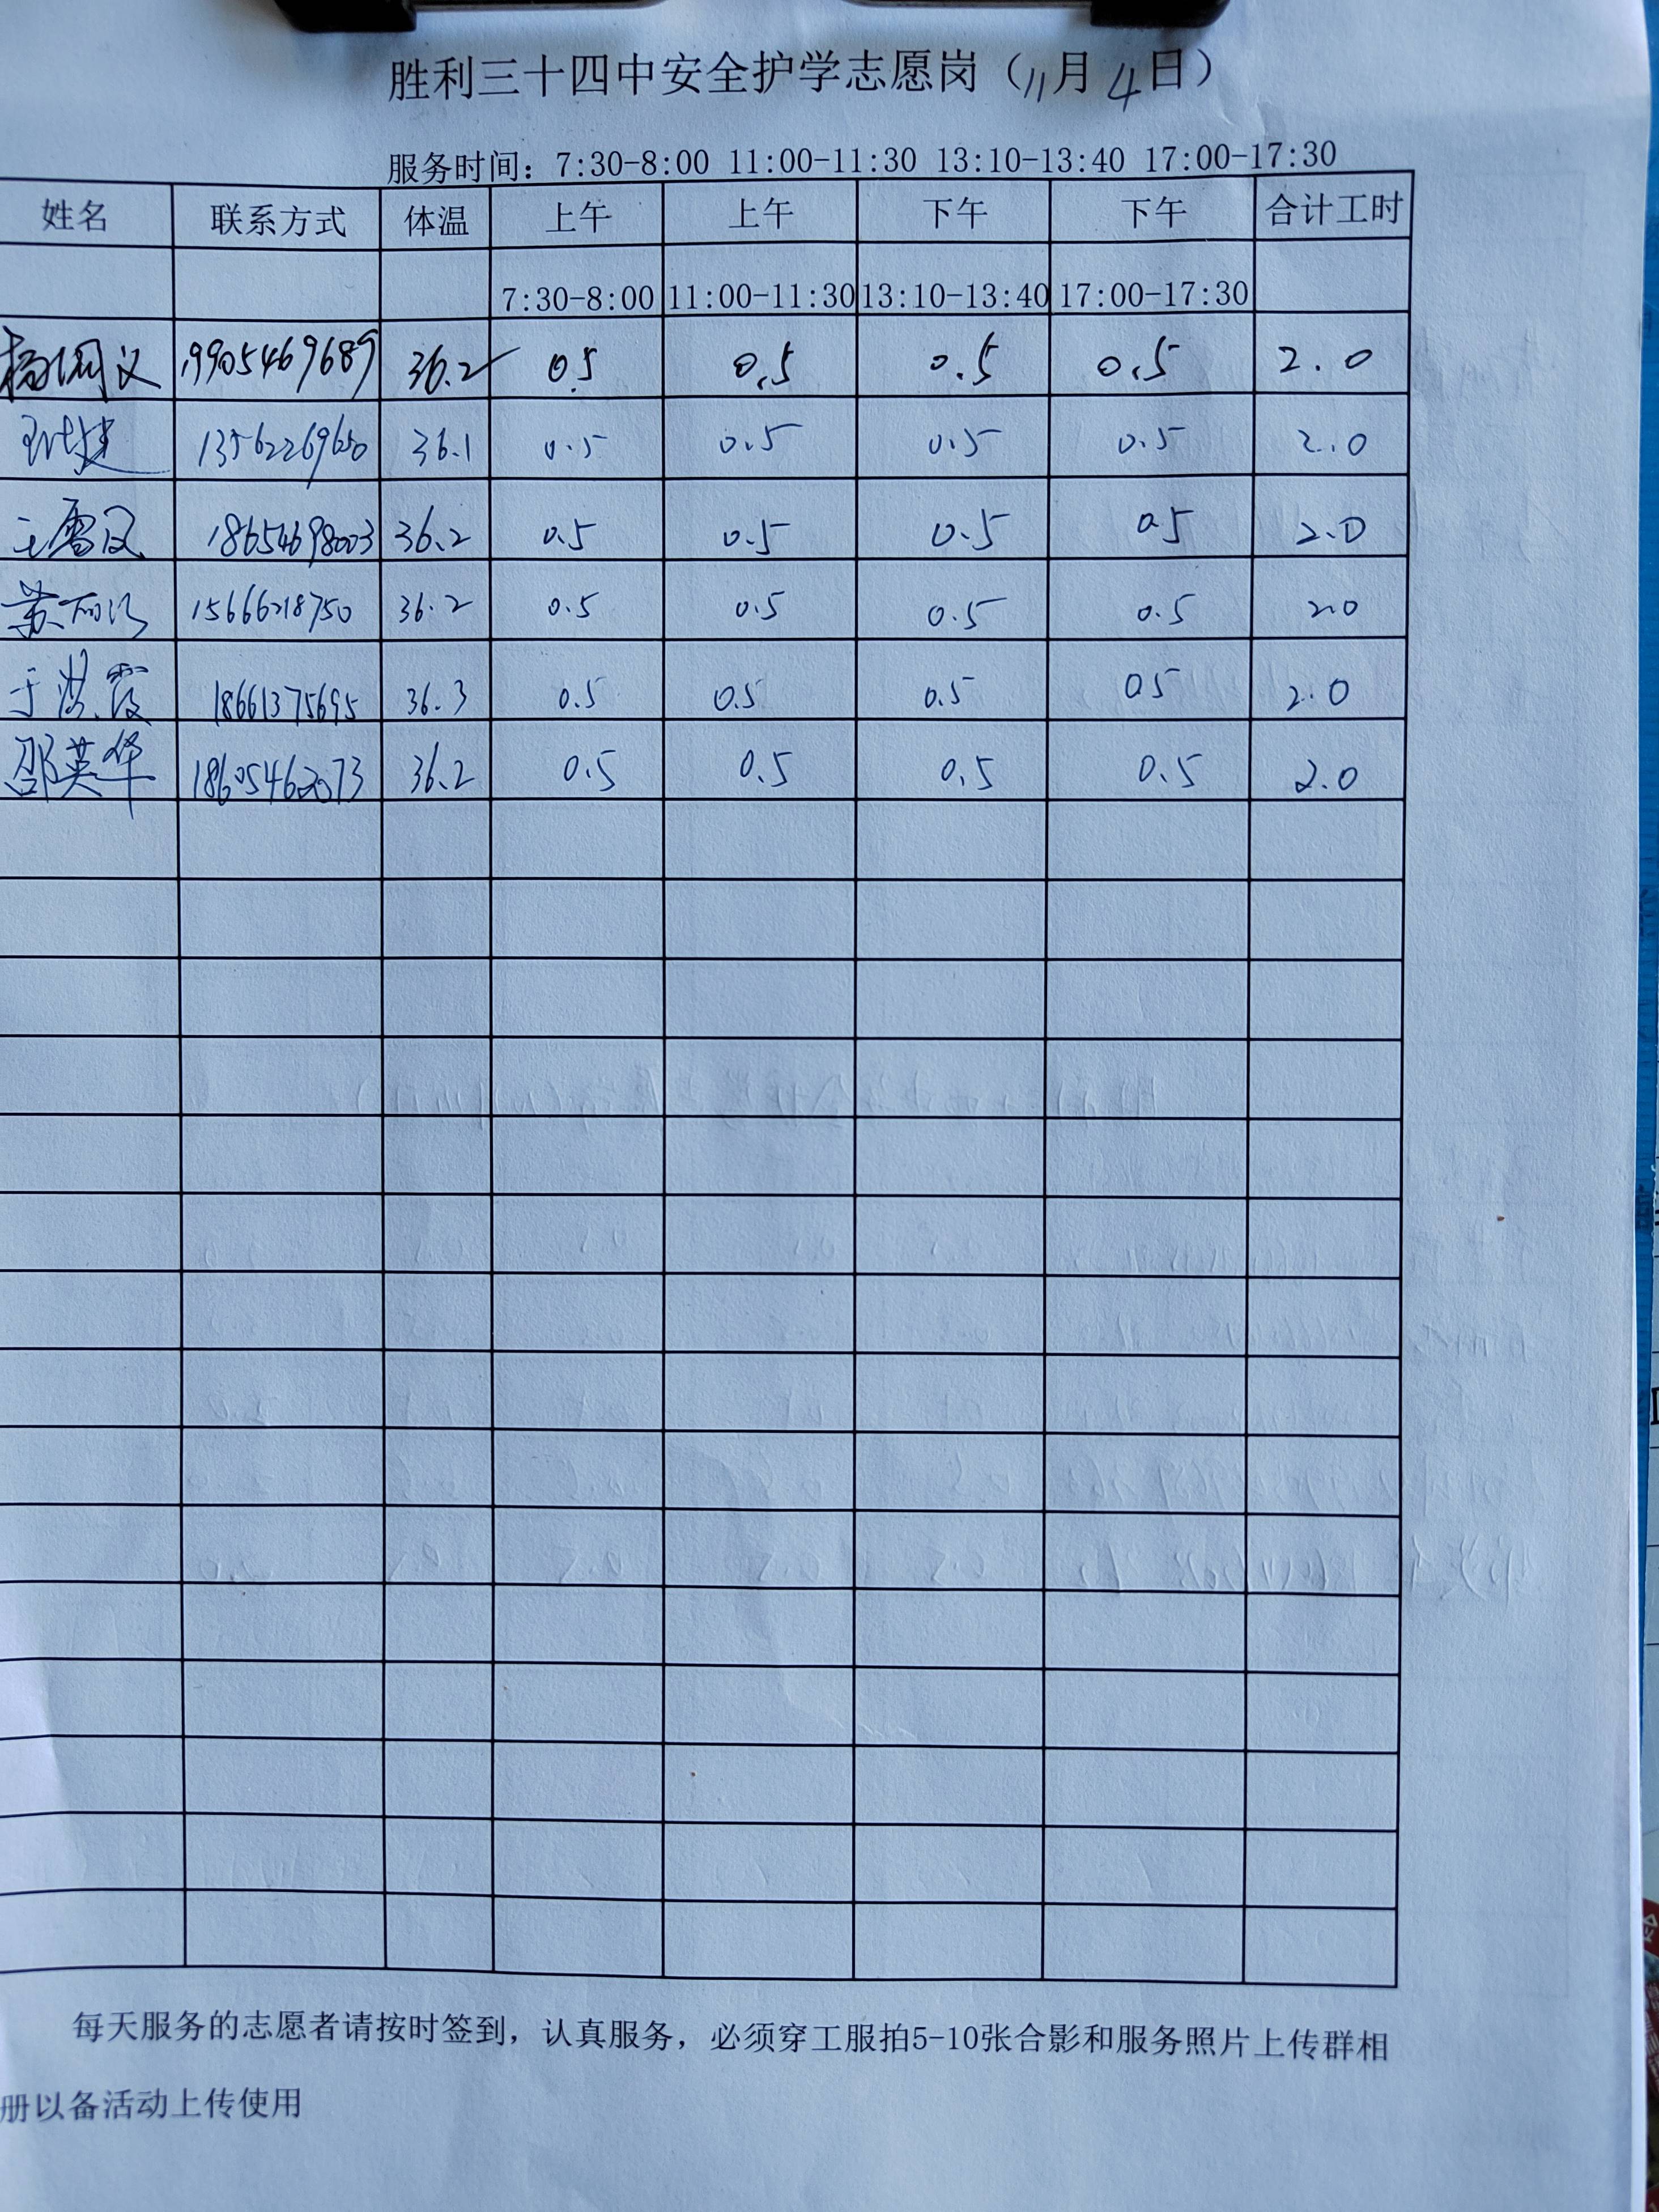 胜利三十四中安全护学志愿岗（11月4日）
服务时间：7:30-8:00 11:00-11:30 13:10-13:40 17:00-17:30
姓名 联系方式 体温 上午 上午 下午 下午 合计工时
7:30-8:00 11:00-11:30 13:10-13:40 17:00-17:30
19905469689 36.2 0.5 0.5 0.5 0.5 2.0
13562269650 36.1 0.5 0.5 0.5 0.5 2.0
18654698003 36.2 0.5 0.5 0.5 0.5 2.0
15666218750 36.2 0.5 0.5 0.5 0.5 2.0
于洪霞 18661375695 36.3 0.5 0.5 0.5 0.5 2.0
邵英华 18605462073 36.2 0.5 0.5 0.5 0.5 2.0
每天服务的志愿者请按时签到，认真服务，必须穿工服拍5-10张合影和服务照片上传群相
册以备活动上传使用